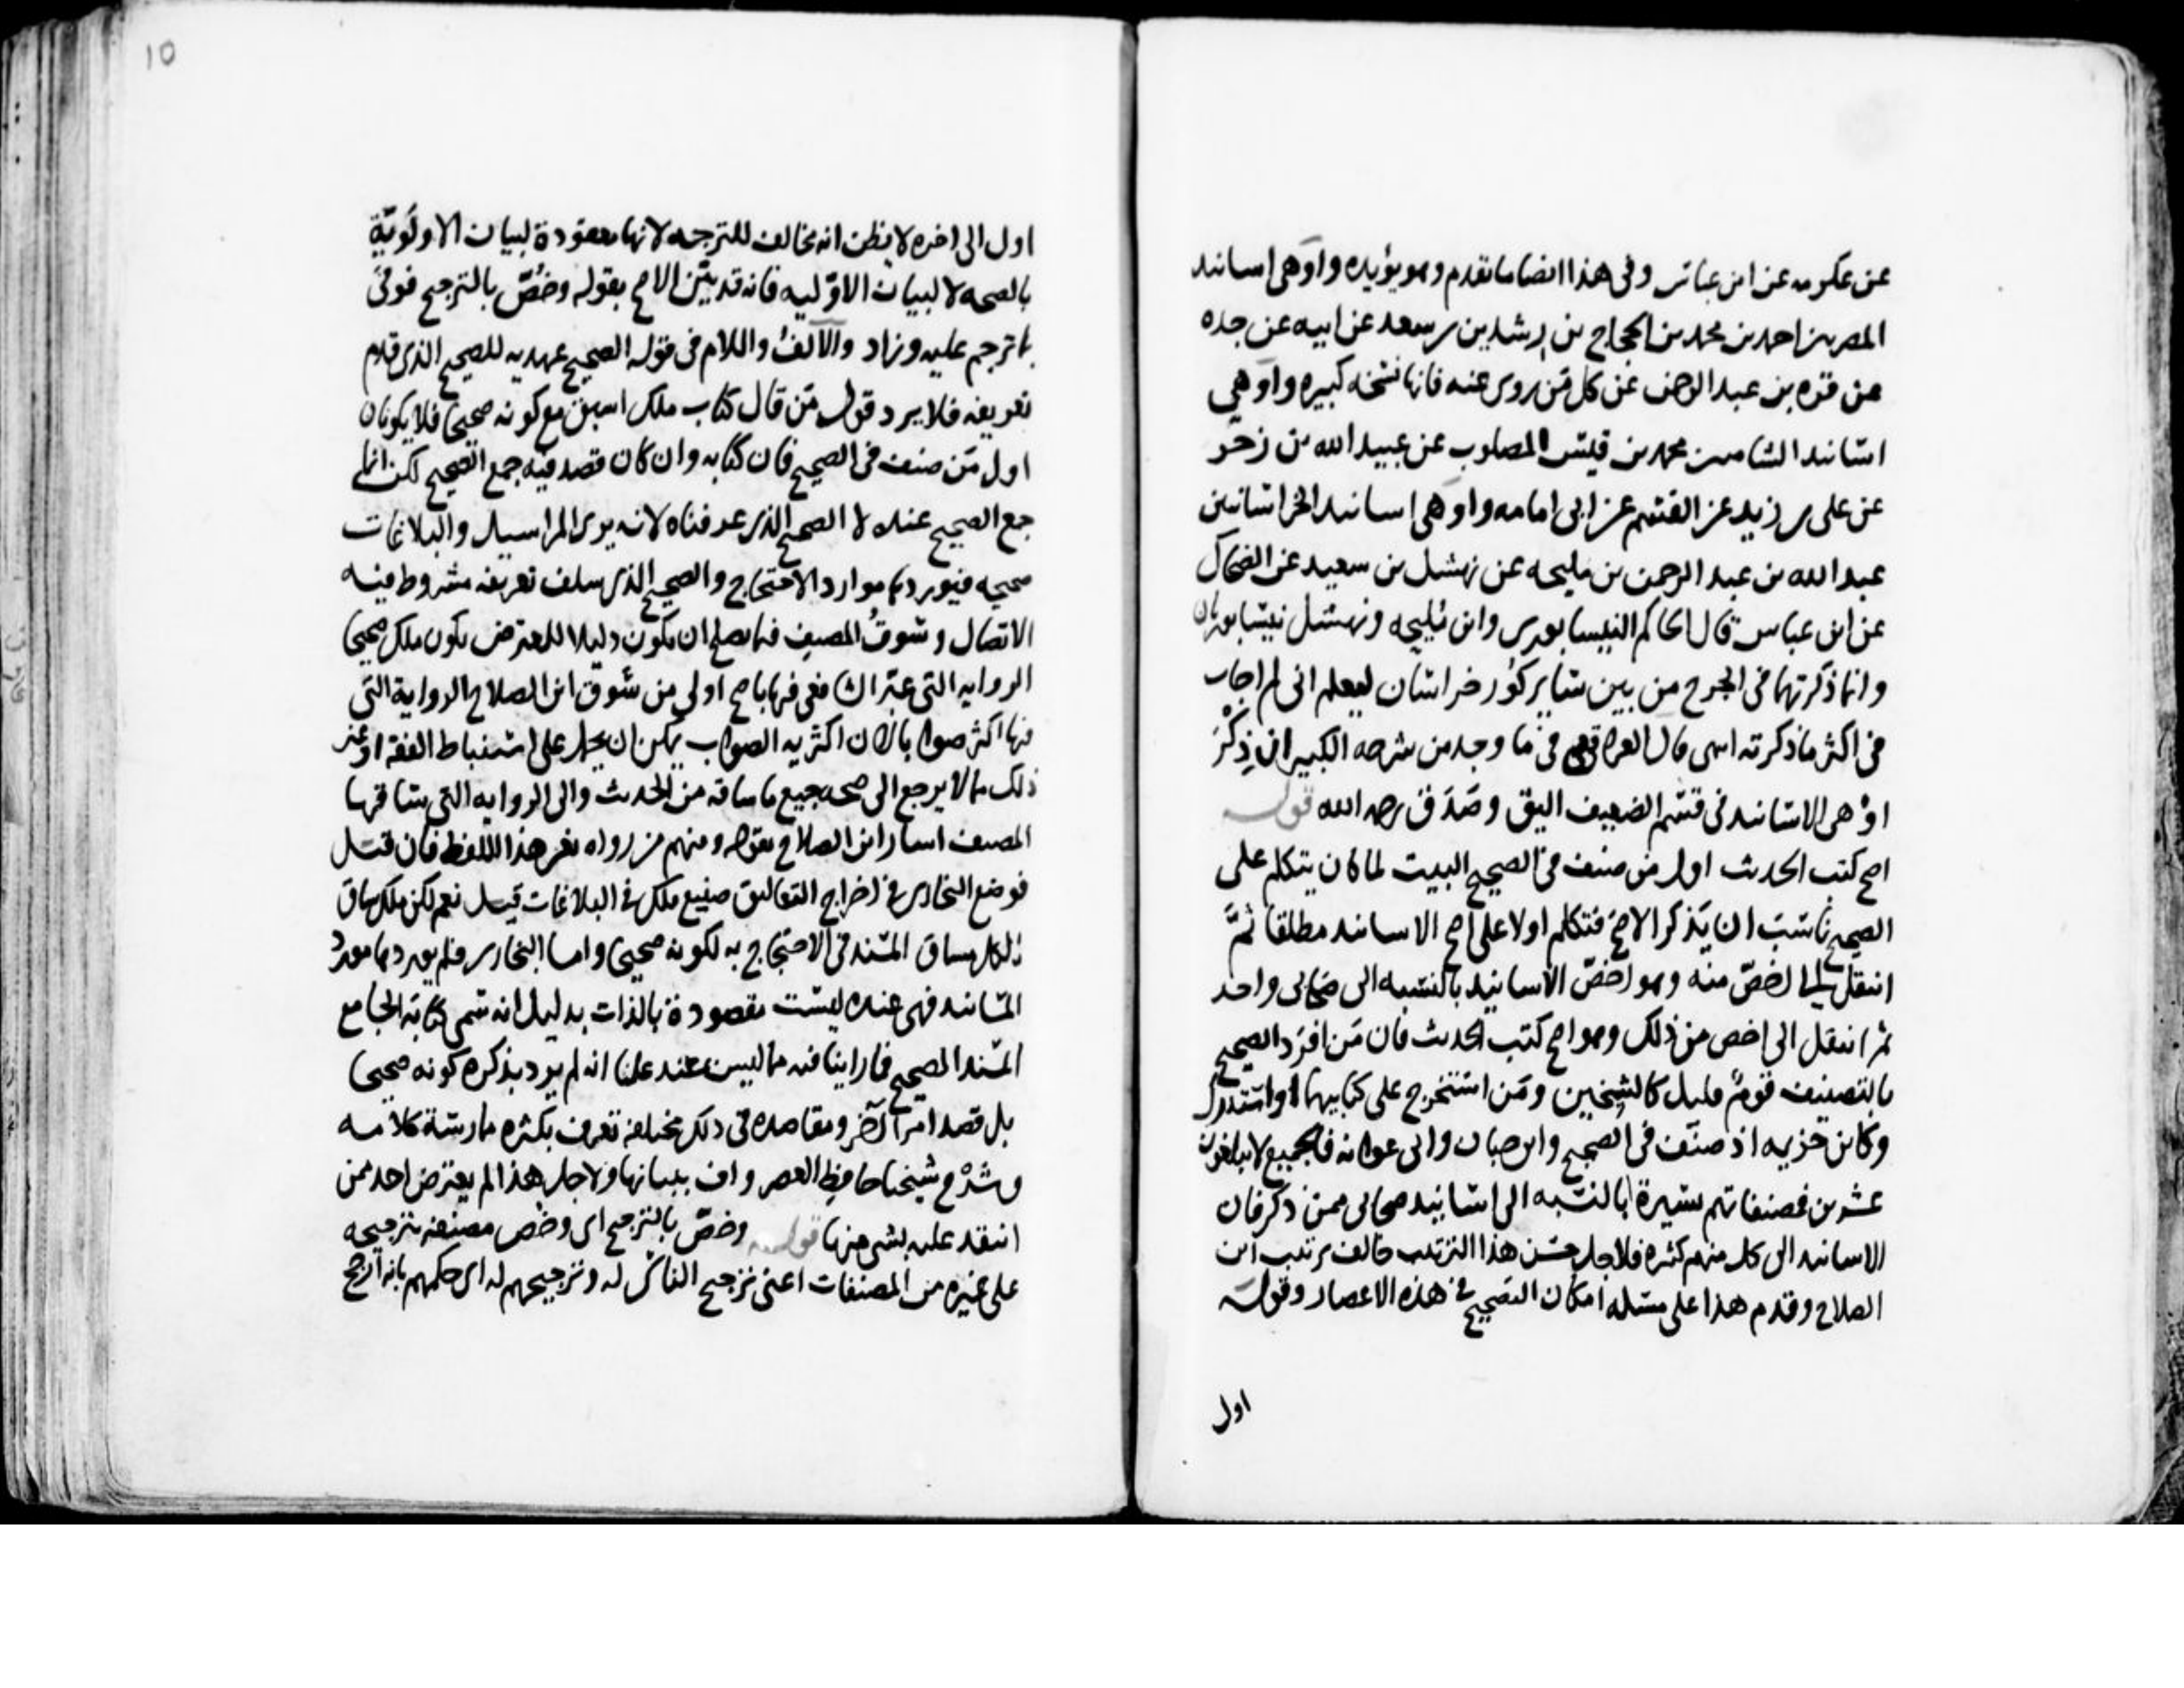 عن عكرمه عن ابن عباس وفي هذا ايضا ما تقدم وهو يؤيده واوهى اسانيد
المصريين احمد بن محمد بن الحجاج بن رشدين بن سعد عن ابيه عن جده
عن قره بن عبد الرحمن عن كل من روى عنه فانها نسخه كبيره واوهى
اسانيد الشاميين محمد بن قيس المصلوب عن عبيد الله بن زحر
عن علي بن زيد عن القسم عن ابي امامه واوهى اسانيد الخراسانيين
عبد الله بن عبد الرحمن بن مليحه عن نهشل بن سعيد عن الضحاك
عن ابن عباس قال الحاكم النيسابوري وابن مليحه ونهشل نيسابوريان
وانما ذكرتهما في الجرح من بين ساير كور خراسان ليعلم اني لم احاب
في اكثر ما ذكرته انتهى قال العراقي في ما وجد من شرحه الكبير ان ذكر
اوهى الاسانيد في قسم الضعيف اليق وصدق رحمه الله قوله
اصح كتب الحديث اول من صنف في الصحيح البيت لما كان يتكلم على
الصحيح ناسب ان يذكر الاصح فتكلم اولا على اصح الاسانيد مطلقا ثم
انتقل الى اخص منه وهو اخص الاسانيد بالنسبه الى صحابي واحد
ثم انتقل الى اخص من ذلك وهو اصح كتب الحديث فان من افرد الصحيح
بالتصنيف قوم قليل كالشيخين ومن استخرج على كتابيهما او استدرك
وكابن خزيمه اذ صنف في الصحيح وابن حبان وابي عوانه فالجميع لا يبلغون
عشرين فصنفاتهم يسيرة بالنسبه الى اسانيد صحابي ممن ذكر فان
الاسانيد الى كل منهم كثيره فلاجل حسن هذا الترتيب خالف ترتيب ابن
الصلاح وقدم هذا على مسئله امكان التصحيح في هذه الاعصار وقوله
اول
10
اول الى اخره لا يظن انه مخالف للترجمه لانها معقودة لبيان الاولوية
بالصحه لا لبيان الاوليه فانه قد بين الاصح بقوله وخص بالترجيح فوفى
بما ترجم عليه وزاد والالف واللام في قوله الصحيح عهديه للصحيح الذي قدم
تعريفه فلا يرد قول من قال كتاب ملك اسبق مع كونه صحيحا فلا يكونان
اول من صنف في الصحيح فان كتابه وان كان قصد فيه جمع الصحيح لكن انما
جمع الصحيح عنده لا الصحيح الذي عرفناه لانه يرى المراسيل والبلاغات
صحيحه فيوردها موارد الاحتجاج والصحيح الذي سلف تعريفه مشروط فيه
الاتصال وسوق المصنف فيما يصلح ان يكون دليلا للمعترض بكون ملك صحيحا
الروايه التي عبر الشافعي فيها باصح اولى من سوق ابن الصلاح الرواية التي
فيها اكثر صوابا لان اكثريه الصواب يمكن ان يحمل على استنباط الفقه او غير
ذلك مما لا يرجع الى صحه جميع ما ساقه من الحديث والى الروايه التي ساقها
المصنف اشار ابن الصلاح بقوله ومنهم من رواه بغير هذا اللفظ فان قيل
فوضع البخاري في اخراج التعاليق صنيع ملك في البلاغات قيل نعم لكن ملك ساق
ذلك مساق المسند في الاحتجاج به لكونه صحيحا واما البخاري فلم يوردها مورد
المسانيد فهي عنده ليست مقصودة بالذات بدليل انه سمى كتابه الجامع
المسند الصحيح فما راينا فيه مما ليس بمسند علمنا انه لم يرد بذكره كونه صحيحا
بل قصد امرا آخر ومقاصده في ذلك مختلفه تعرف بكثره ممارسة كلامه
وشرح شيخنا حافظ العصر واف ببيانها ولاجل هذا لم يعترض احد ممن
انتقد عليه بشي منها قوله وخص بالترجيح اي وخص مصنفه بترجيحه
على غيره من المصنفات اعني ترجيح الناس له وترجيحهم له اي حكمهم بانه ارجح